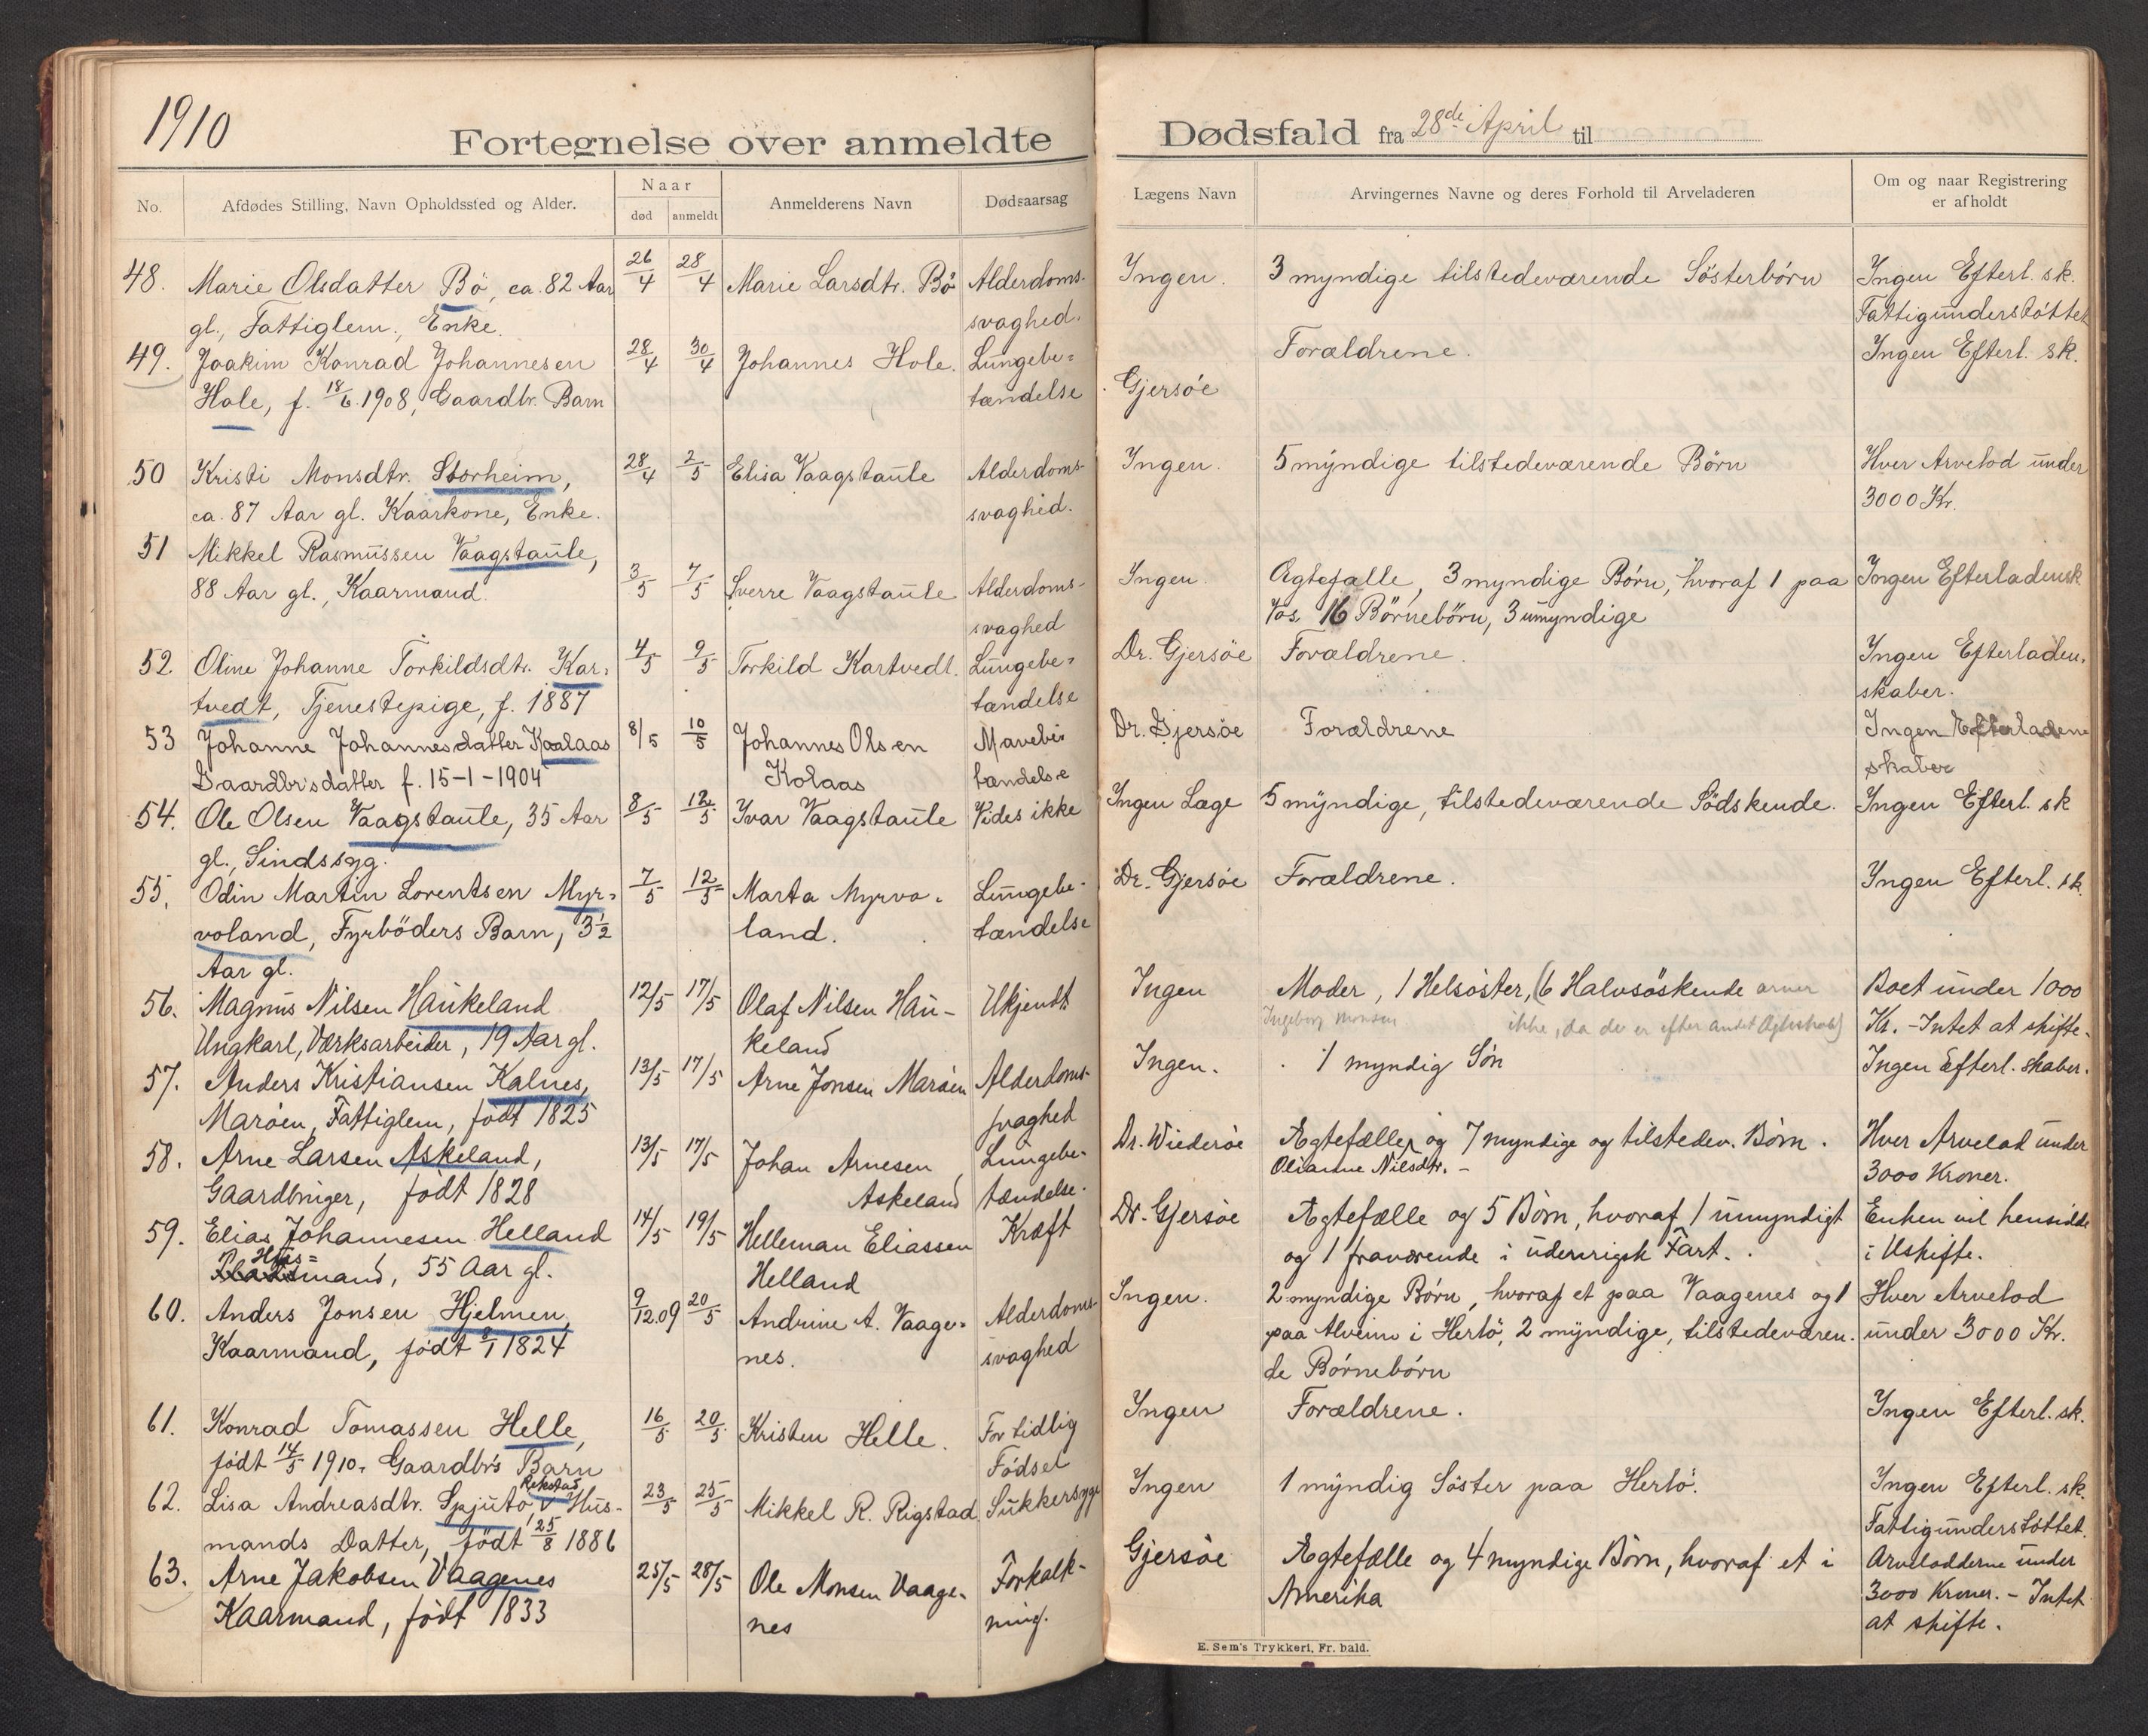 1910
Fortegnelse over anmeldte Dødsfald fra 28de April til
No.
Afdødes Stilling, Navn Opholdssted og Alder.
Naar
død
anmeldt
Anmelderens Navn
Dødsaarsag
Lægens Navn
Arvingernes Navne og deres Forhold til Arveladeren
Om og naar Registrering
er afholdt
48. Marie Olsdatter Bö, ca. 82 Aar 26/4 28/4 Marie Larsdtr. Bö Alderdoms- Ingen. 3 myndige tilstedeværende Sösterbörn Ingen Efterl. sk.
gl., Fattiglem., Enke. svaghed. Fattigunderstöttet
49. Joakim Konrad Johannesen 28/4 30/4 Johannes Hole. Lungebe= Forældrene. Ingen Efterl. sk.
Hole, f. 18/6 1908, Gaardbr. Barn tændelse Gjersöe
50 Kristi Monsdtr. Storheim, 28/4 2/5 Elisa Vaagstaule Alderdoms- Ingen. 5 myndige tilstedeværende Börn Hver Arvelod under
ca. 87 Aar gl. Kaarkone, Enke. svaghed. 3000 Kr.
51 Mikkel Rasmussen Vaagstaule,
88 Aar gl., Kaarmand. 3/5 7/5 Sverre Vaagstaule Alderdoms- Ingen. Ægtefælle, 3 myndige Börn, hvoraf 1 paa Ingen Efterladensk
svaghed Vos. 16 Börnebörn, 3 umyndige
52 Oline Johanne Torkildsdtr. Kar= 4/5 9/5 Torkild Kartvedt. Lungebe= Dr. Gjersöe Forældrene. Ingen Efterladen=
tvedt, Tjenestepige, f. 1887 tændelse skaber.
53 Johanne Johannesdatter Kaalaas 8/5 10/5 Johannes Olsen Mavebe Dr. Gjersöe Forældrene Ingen Efterladene
Gaardbr's datter f. 15-1-1904 Kolaas tændelse skaber
54. Ole Olsen Vaagstaule, 35 Aar 8/5 12/5 Ivar Vaagstaule Vides ikke Ingen Læge 5 myndige, tilstedeværende Södskende. Ingen Efterl. sk
gl., Sindssyg.
55. Odin Martin Lorentsen Myr= 7/5 12/5 Marta Myrvo= Lungebe- Dr. Gjersöe Forældrene. Ingen Efterl. sk.
voland, Fyrböders Barn, 3½ land. tændelse
Aar gl.
56. Magnus Nilsen Haukeland 12/5 17/5 Olaf Nilsen Hau- Ukjendt Ingen Moder, 1 Helsöster, (6 Halvsöskende arver Boet under 1000
Ungkarl, Værksarbeider, 19 Aar gl. keland Ingeborg Monsen ikke, da de er efter andet Ægteskab) Kr. - Intet at skifte.
57. Anders Kristiansen Kalnes, 13/5 17/5 Arne Jonsen Maröen Alderdoms- Ingen. 1 myndig Sön Ingen Efterl. skaber.
Maröen, Fattiglem, födt 1825 svaghed
58. Arne Larsen Askeland, 13/5 17/5 Johan Arnesen Lungebe- Dr. Wiederöe Ægtefælle, og 7 myndige og tilstedev. Börn. Hver Arvelod under
Gaardbruger, födt 1828 Askeland tændelse. Olianne Nilsdtr. - 3000 Kroner.
59. Elias Johannesen Helland 14/5 19/5 Helleman Eliassen Kræft Dr. Gjersöe Ægtefælle og 5 Börn, hvoraf 1 umyndigt Enken vil hensidde
Hus=
mand, 55 Aar gl. Helland og 1 fraværende i udenrigsk Fart. i Uskifte.
60. Anders Jonsen Hjelmen, 9/12.09 20/5 Andrine A. Vaage= Alderdoms- Ingen. 2 myndige Börn, hvoraf et paa Vaagenes og 1 Hver Arvelod
Kaarmand, födt 8/1 1824 nes. svaghed paa Alveim i Herlö, 2 myndige, tilstedeværen- under 3000 Kr.
de Börnebörn
61. Konrad Tomassen Helle, 16/5 20/5 Kristen Helle. For tidlig Ingen Forældrene. Ingen Efterl. sk.
födt 14/5 1910. Gaardbr's Barn Födsel
Rekstad
62. Lisa Andreasdtr. Spjutö, Hus- 23/5 25/5 Mikkel R. Rigstad Sukkersyge Ingen 1 myndig Söster paa Herlö. Ingen Efterl. sk.
mands Datter, födt 25/8 1886 Fattigunderstöttet.
63. Arne Jakobsen Vaagenes 25/5 28/5 Ole Monsen Vaage- Forkalk- Gjersöe Ægtefælle og 4 myndige Börn, hvoraf et i Arvelodderne under
Kaarmand, födt 1833 nes ning. Amerika 3000 Kroner. - Intet
at skifte.
E. Sem's Trykkeri, Fr. hald.